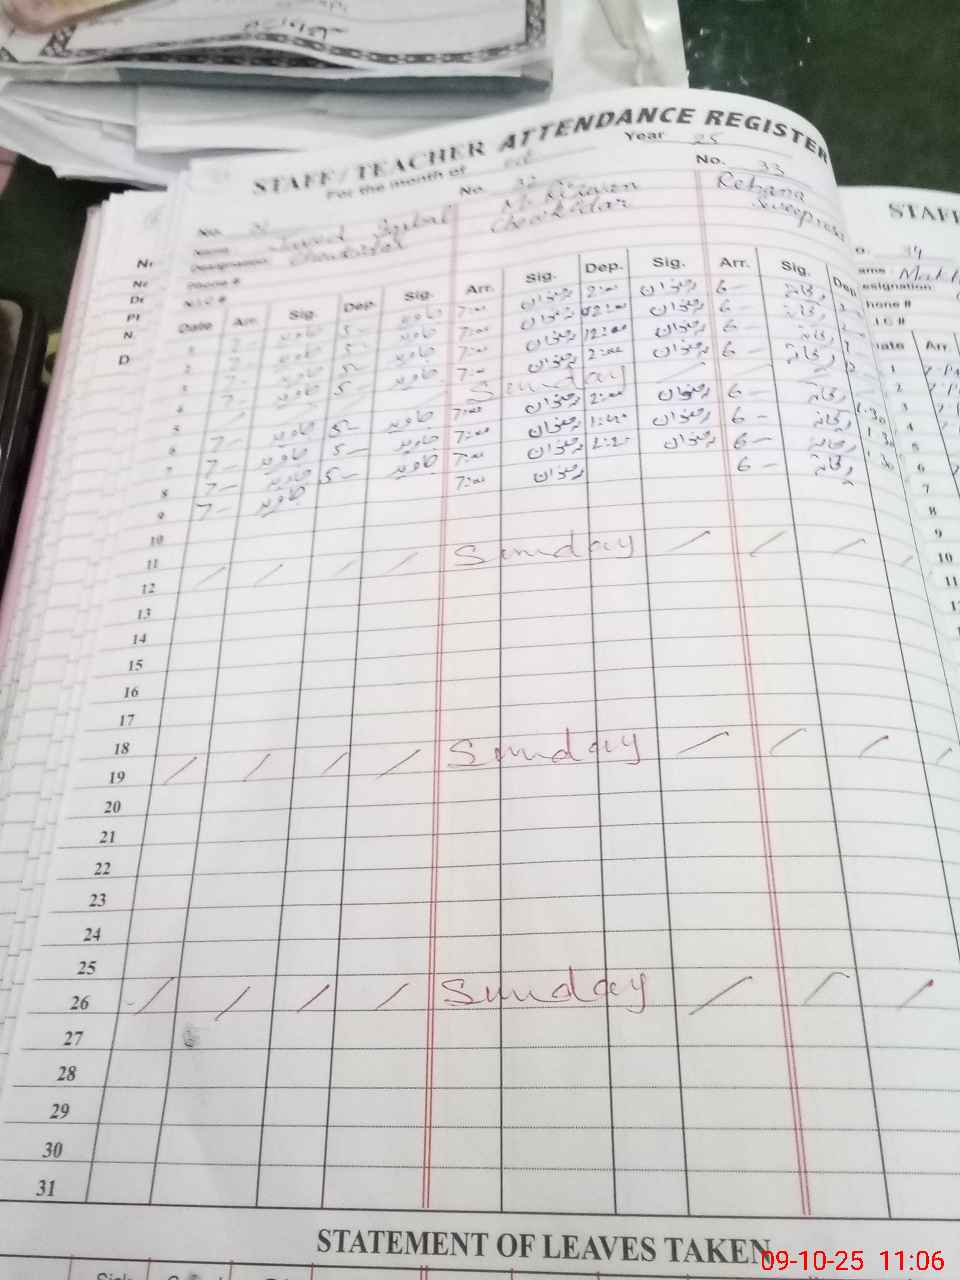 STAFF/TEACHER ATTENDANCE REGISTER
For the month of oct Year 25
No. No. 32 No. 33
Name Javed Iqbal M. Rizwan Rehana
Designation Chowkidar Chowkidar Sweepress
Phone #
N.I.C #
Date Arr. Sig. Dep. Sig. Arr. Sig. Dep. Sig. Arr. Sig. Dep.
1 7- جاوید 5- جاوید 7:00 رضوان 2:00 رضوان 6- ریحانہ
2 7- جاوید 5- جاوید 7:00 رضوان 12:00 رضوان 6- ریحانہ
3 7- جاوید 5- جاوید 7:00 رضوان 12:00 رضوان 6- ریحانہ
4 7- جاوید 5- جاوید 7:00 رضوان 2:00 رضوان 6- ریحانہ
5 Sunday
6 7- جاوید 5- جاوید 7:00 رضوان 2:00 رضوان 6- ریحانہ 1:30
7 7- جاوید 5- جاوید 7:00 رضوان رضوان 6- ریحانہ 1:30
8 7- جاوید 5- جاوید 7:00 رضوان رضوان 6- ریحانہ 1:30
9 7- جاوید 7:00 رضوان 6- ریحانہ
10
11
12 Sunday
13
14
15
16
17
18
19 Sunday
20
21
22
23
24
25
26 Sunday
27
28
29
30
31
STATEMENT OF LEAVES TAKEN
Sick
STAFF
34
ame
esignation
hone #
I C #
ate Arr
1
2
3
4
5
6
7
8
9
10
11
09-10-25 11:06